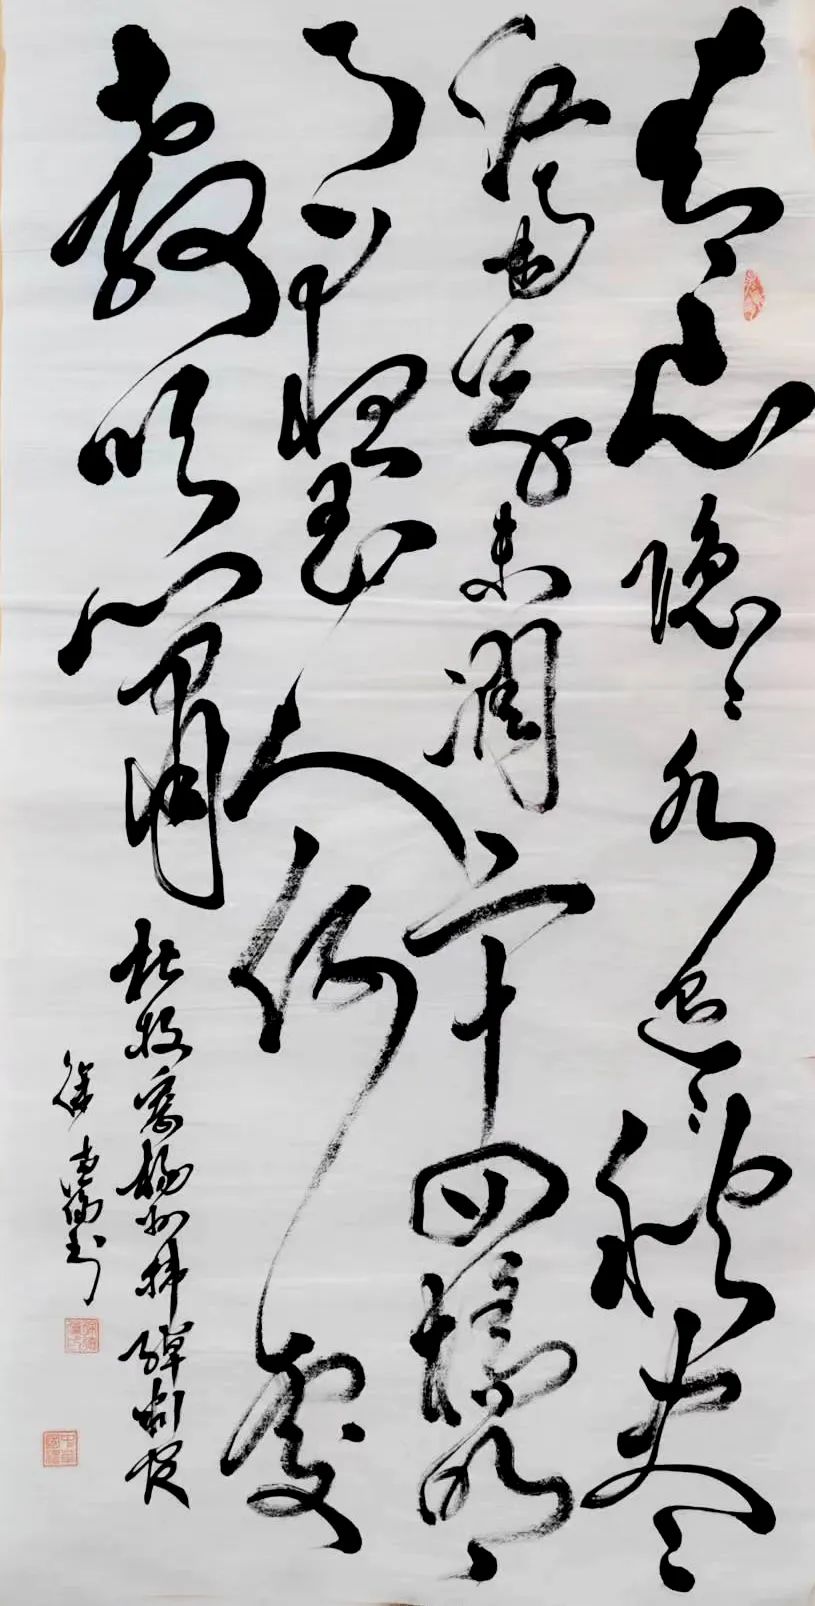 青山隐〻水迢〻秋尽
江南草未凋二十四橋明
月夜玉人何处
教吹箫
杜牧寄扬州韩绰判官
徐